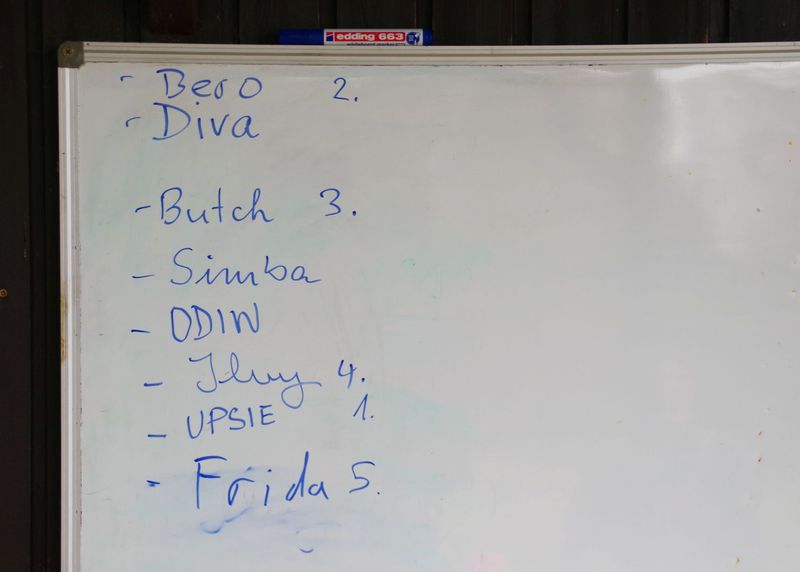 edding 663
- Bero 2.
- Diva
- Butch 3.
- Simba
- ODIN
- 4.
- UPSIE 1.
- Frida 5.